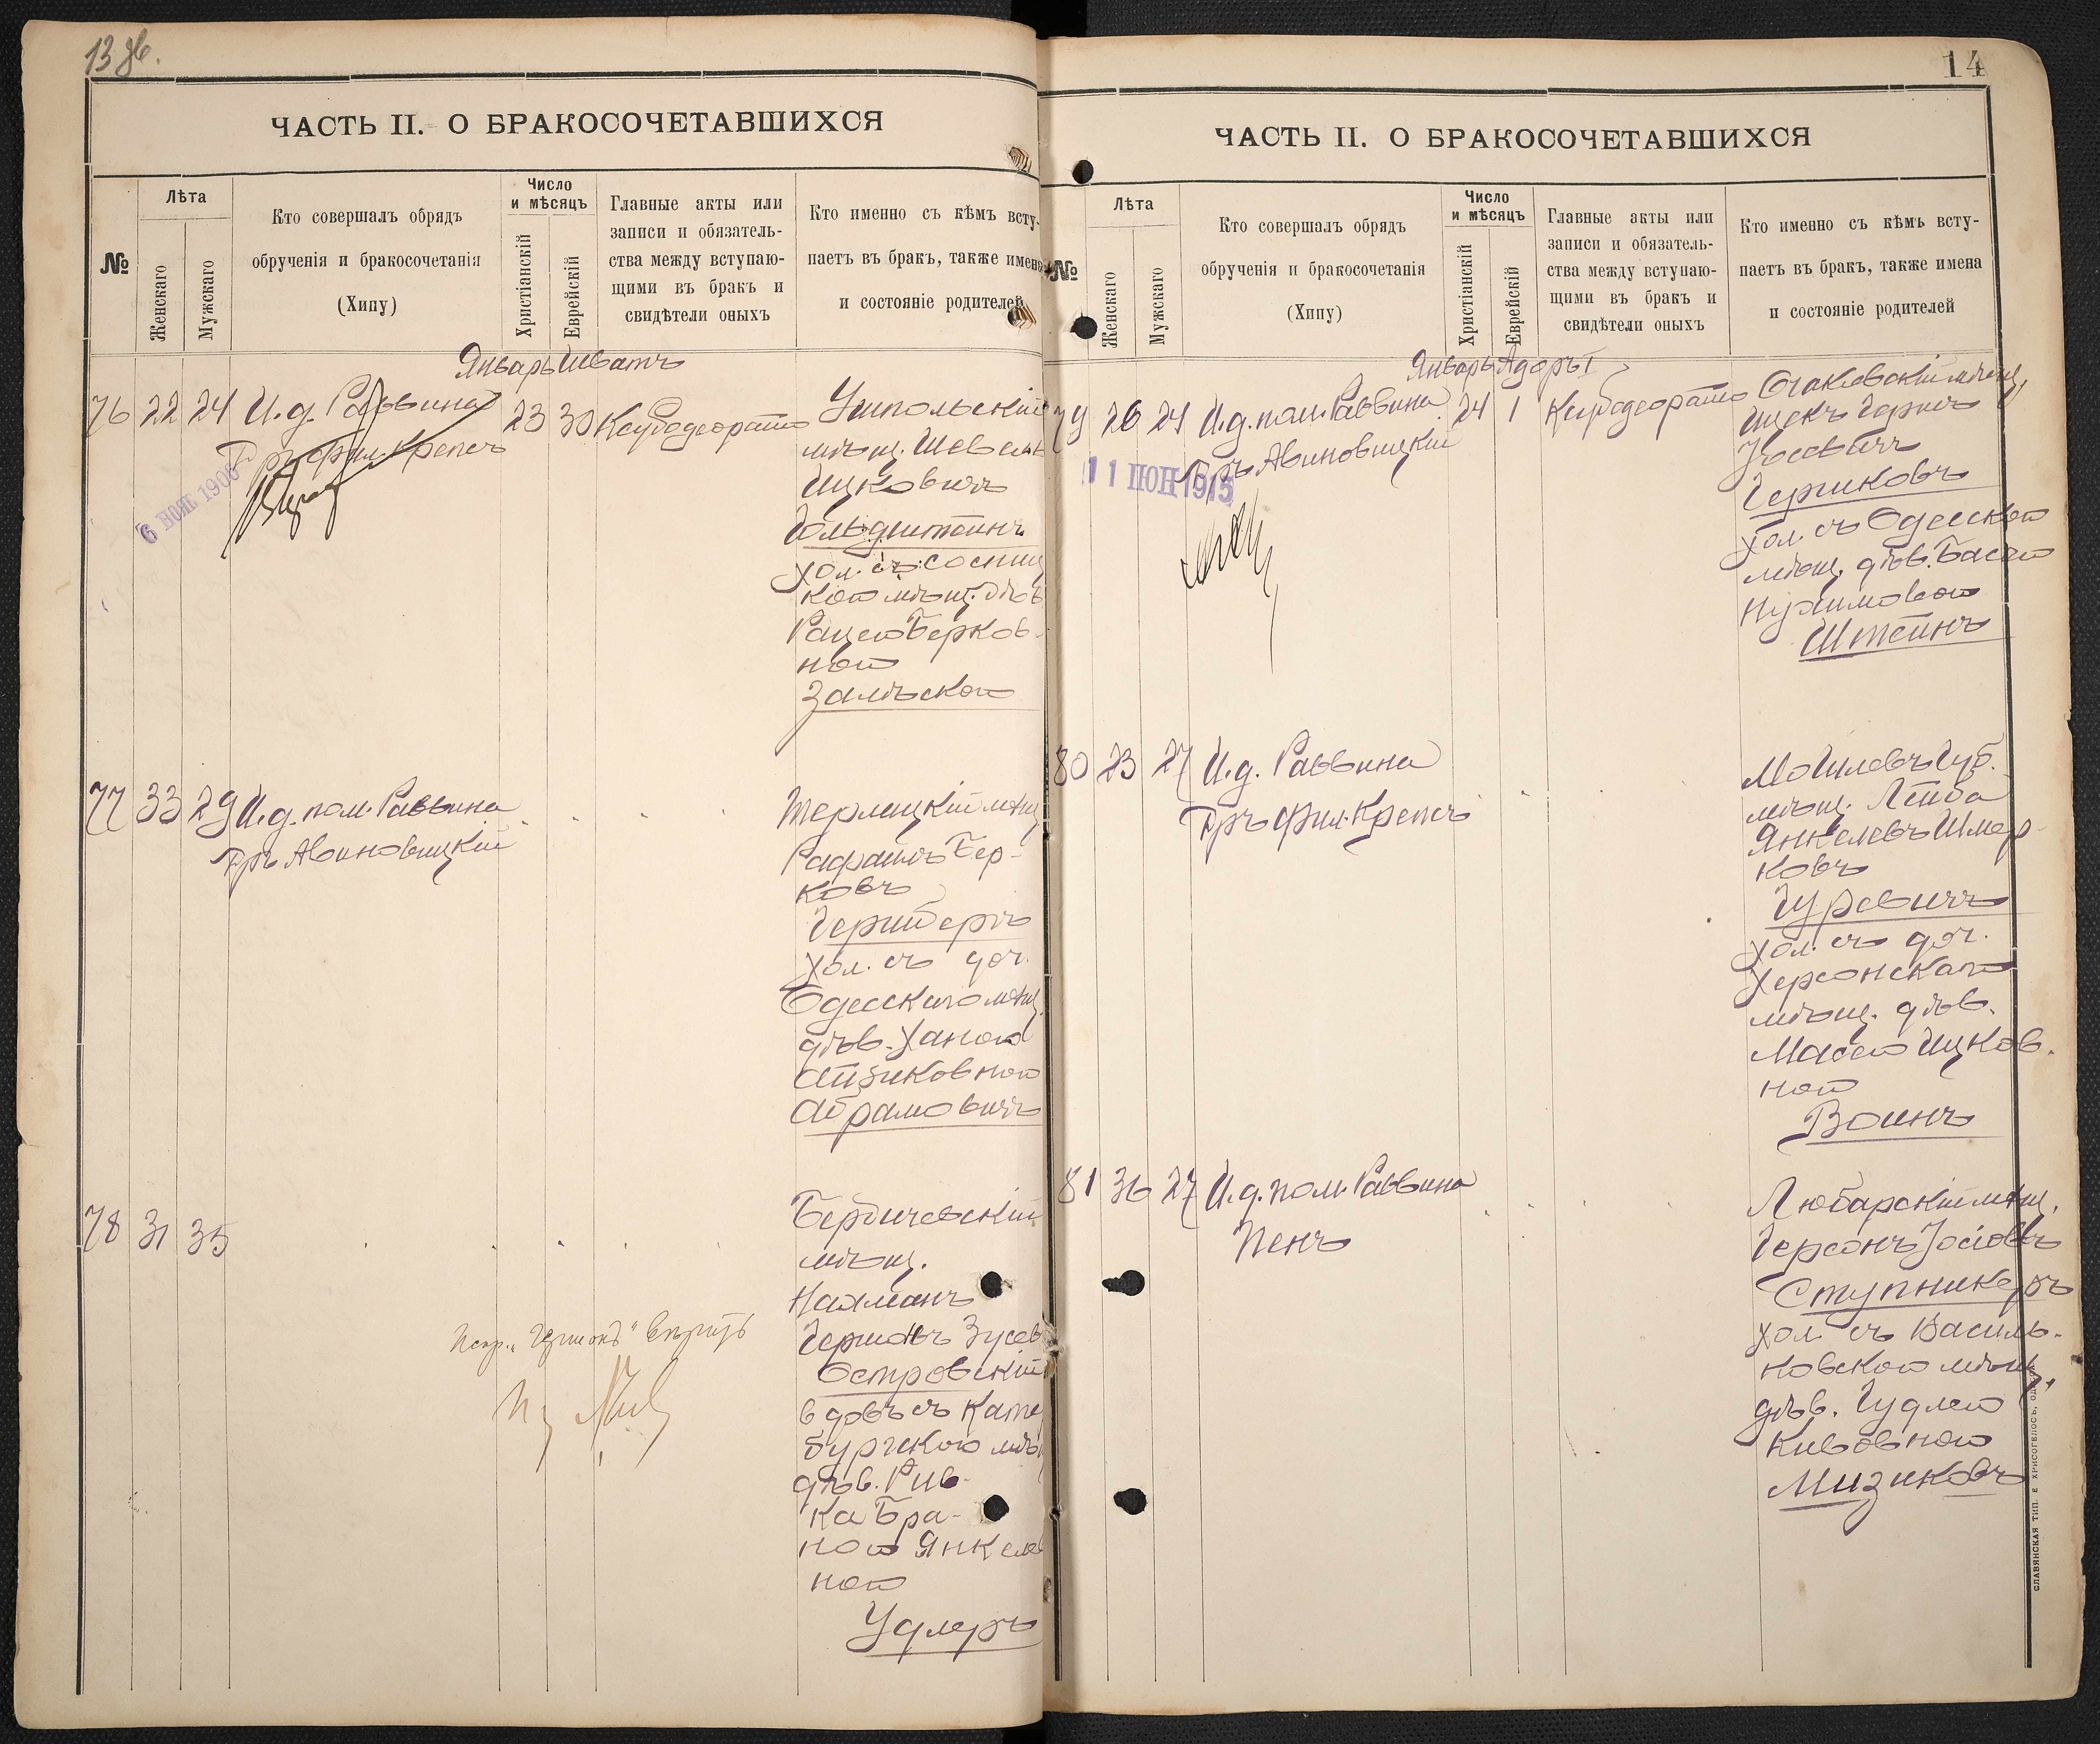 13 об.
ЧАСТЬ II. О БРАКОСОЧЕТАВШИХСЯ
№
Лѣта
Женскаго
Мужскаго
Кто совершалъ обрядъ
обрученія и бракосочетанія
(Хипу)
Число
и мѣсяцъ
Христіанскій
Еврейскій
Главные акты или
записи и обязатель-
ства между вступаю-
щими въ бракъ и
свидѣтели оныхъ
Кто именно съ кѣмъ всту-
паетъ въ бракъ, также имена
и состояніе родителей
Январь Шватъ
76 22 24 И.д. Раввина 23 30
Дръ Фил. Крепсъ
6 НОЯ 1906
мѣщ. Шевель
Ицковичъ
Гольдштейнъ
хол. съ
мѣщ. дѣв
Рацею Берков-
ной
Залѣской
77 33 29 И.д. пом. Раввина
Дръ Авиновицкій
Рафаилъ Бер-
ковъ
Гершбергъ
хол. съ доч.
Одесскаго мѣщ.
дѣв. Ханою
Айзиковной
Абрамовичъ
78 31 35
Бердичевскій
мѣщ.
Нахманъ
Гершонъ Зусев
Островскій
вдовъ съ Кате
бургскою мѣщ
дѣв. Рив-
ка Бра-
ною Янкелев
ной
Удлеръ
Испр. „Гершонъ" вѣрить
14
ЧАСТЬ II. О БРАКОСОЧЕТАВШИХСЯ
№
Лѣта
Женскаго
Мужскаго
Кто совершалъ обрядъ
обрученія и бракосочетанія
(Хипу)
Число
и мѣсяцъ
Христіанскій
Еврейскій
Главные акты или
записи и обязатель-
ства между вступаю-
щими въ бракъ и
свидѣтели оныхъ
Кто именно съ кѣмъ всту-
паетъ въ бракъ, также имена
и состояніе родителей
Январь Адоръ I
79 26 24 И.д. пом. Раввина 24 1
Дръ Авиновицкій
11 ИЮН 1915
Очаковскій мѣщ.
Ицекъ Гершъ
Герциковъ
хол. съ Одесской
мѣщ. дѣв. Басею
Нухимовою
Штейнъ
80 23 27 И.д. Раввина
Дръ Фил. Крепсъ
Могилевъ Губ.
мѣщ. Лейба
Янкелевъ Шмер-
ковъ
Гуревичъ
хол. съ доч.
Херсонскаго
мѣщ. дѣв.
Масею Ицков.
ной
Воинъ
81 36 27 И.д. пом. Раввина
Пенъ
Любарскій мѣщ.
Герсонъ Іосіовъ
Ступникеръ
хол. съ Василь-
ковской мѣщ.
дѣв. Гудлею
Кивовною
Мизиковъ
СЛАВЯНСКАЯ ТИП. Е ХРИСОГЕЛОСЪ, ОДЕССА